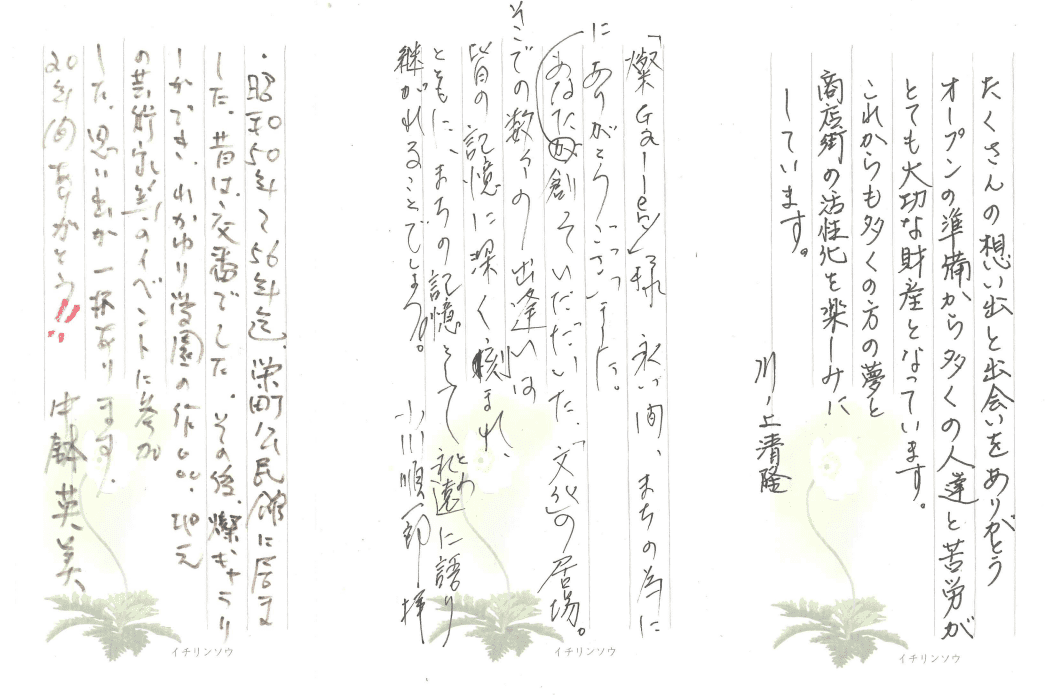 たくさんの想い出と出会いをありがとう
オープンの準備から多くの人達と苦労が
とても大切な財産となっています。
これからも多くの方の夢と
商店街の活性化を楽しみに
しています。
川上清隆
イチリンソウ
「燦Gallery」様 永い間、まちの為に
にありがとうございました。
あなたが創っていただいた「文化」の居場。
そこでの数々の出逢いは
皆の記憶に深く刻まれ、
ともに、まちの記憶として永遠に語り
とわ
継がれることでしょう。 小川順一郎 拝
イチリンソウ
・昭和50年〜56年迄、栄町公民館に居ま
した。昔は、交番でした。その後、燦ギャラリ
ーができ、わかゆり学園の作品、
の芸術家等のイベントに参加
した。思い出が一杯あります。
20年間ありがとう!!
中 英美
イチリンソウ